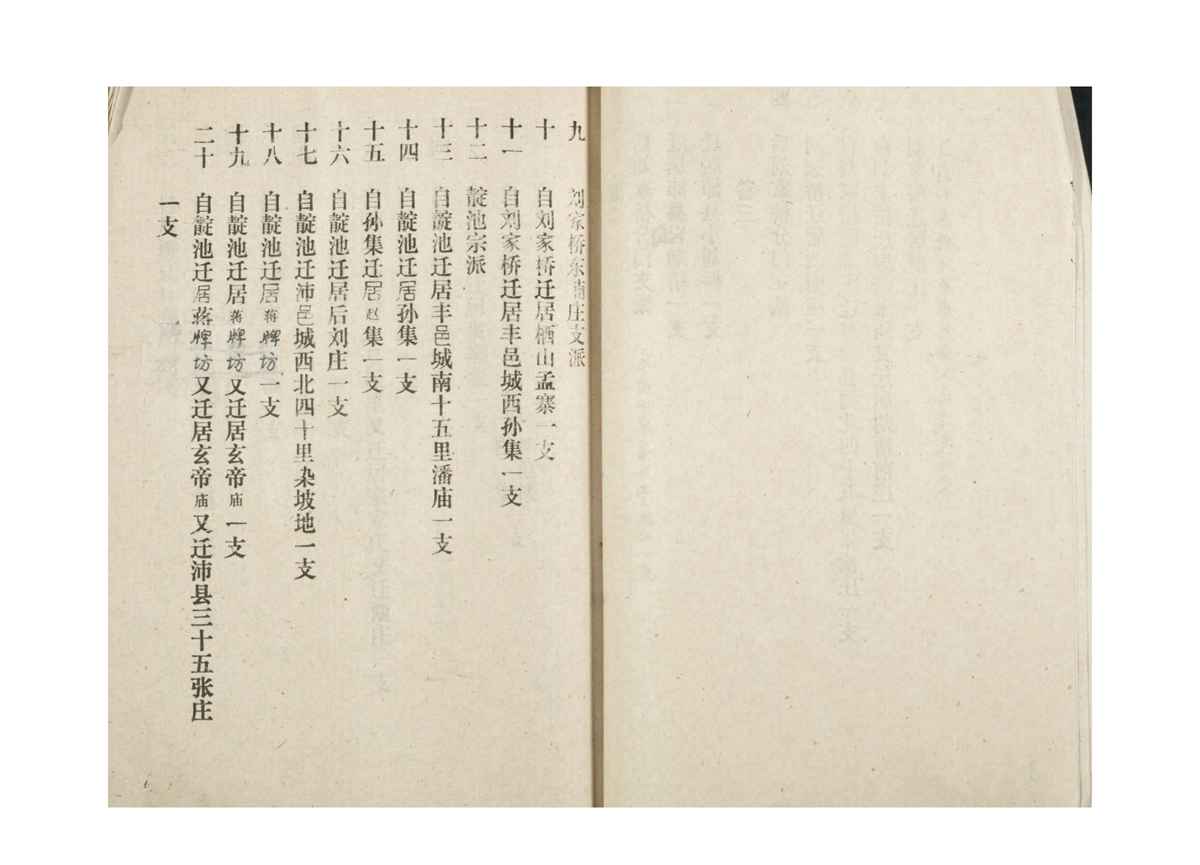 九　刘家桥东南庄支派
十　自刘家桥迁居栖山孟寨一支
十一　自刘家桥迁居丰邑城西孙集一支
十二　靛池宗派
十三　自靛池迁居丰邑城南十五里潘庙一支
十四　自靛池迁居孙集一支
十五　自孙集迁居赵集一支
十六　自靛池迁居后刘庄一支
十七　自靛池迁沛邑城西北四十里杂坡地一支
十八　自靛池迁居蒋牌坊一支
十九　自靛池迁居蒋牌坊又迁居玄帝庙一支
二十　自靛池迁居蒋牌坊又迁居玄帝庙又迁沛县三十五张庄
一支